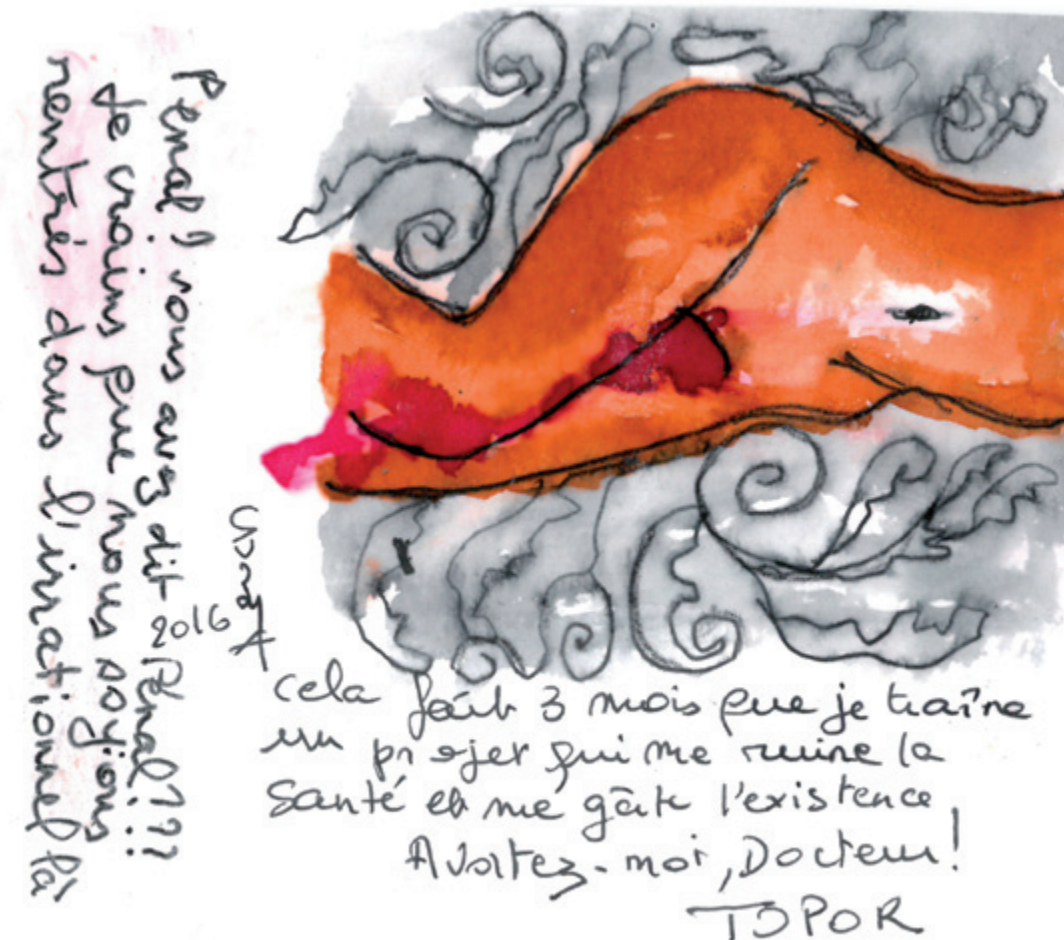 Pénal? vous avez dit Pénal???
Je crains que nous soyions
rentrés dans l'irrationnel là
2016
cela fait 3 mois que je traîne
un projet qui me ruine la
Santé et me gâte l'existence
Avortez-moi, Docteur!
TOPOR